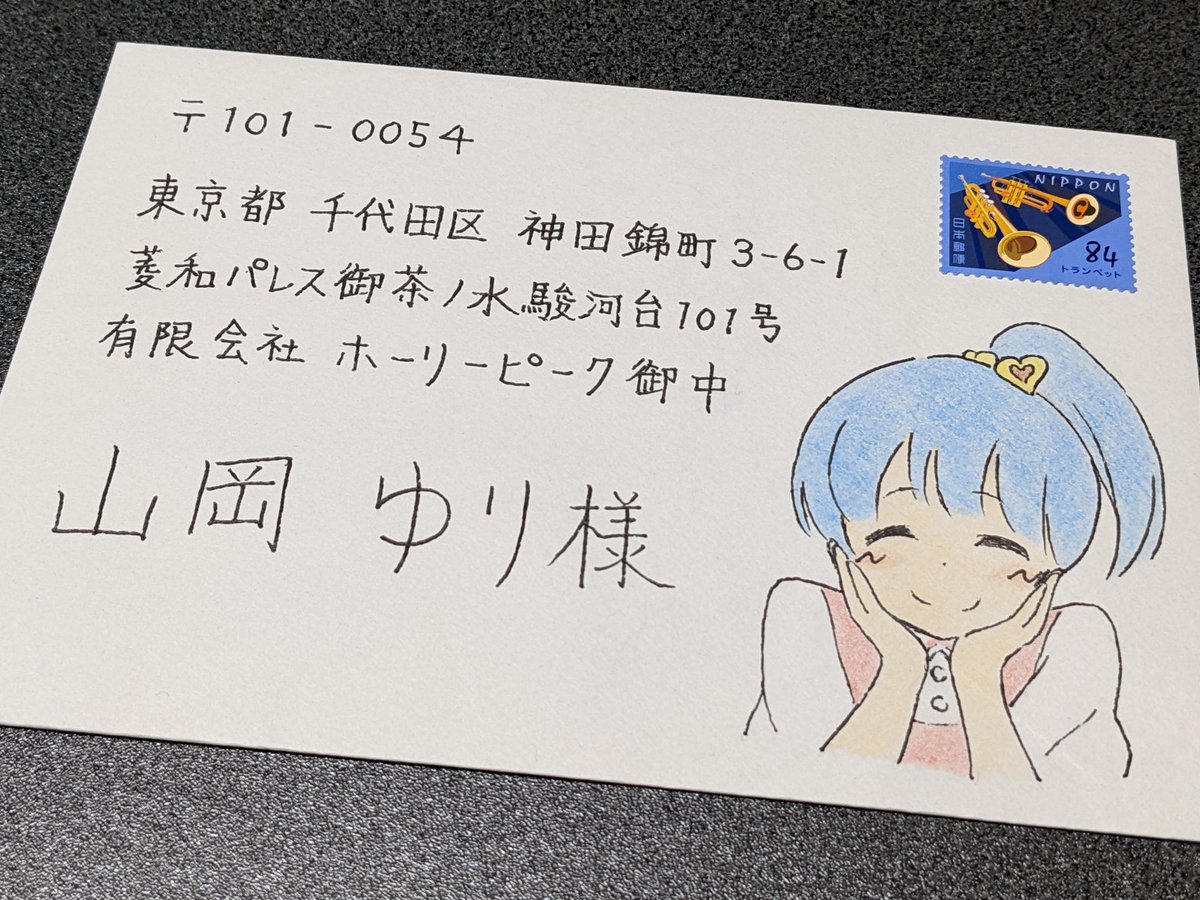 〒101-0054
東京都 千代田区 神田錦町3-6-1
菱和パレス御茶ノ水駿河台101号
有限会社 ホーリーピーク御中
山岡 ゆり様
NIPPON
日本郵便
84
トランペット